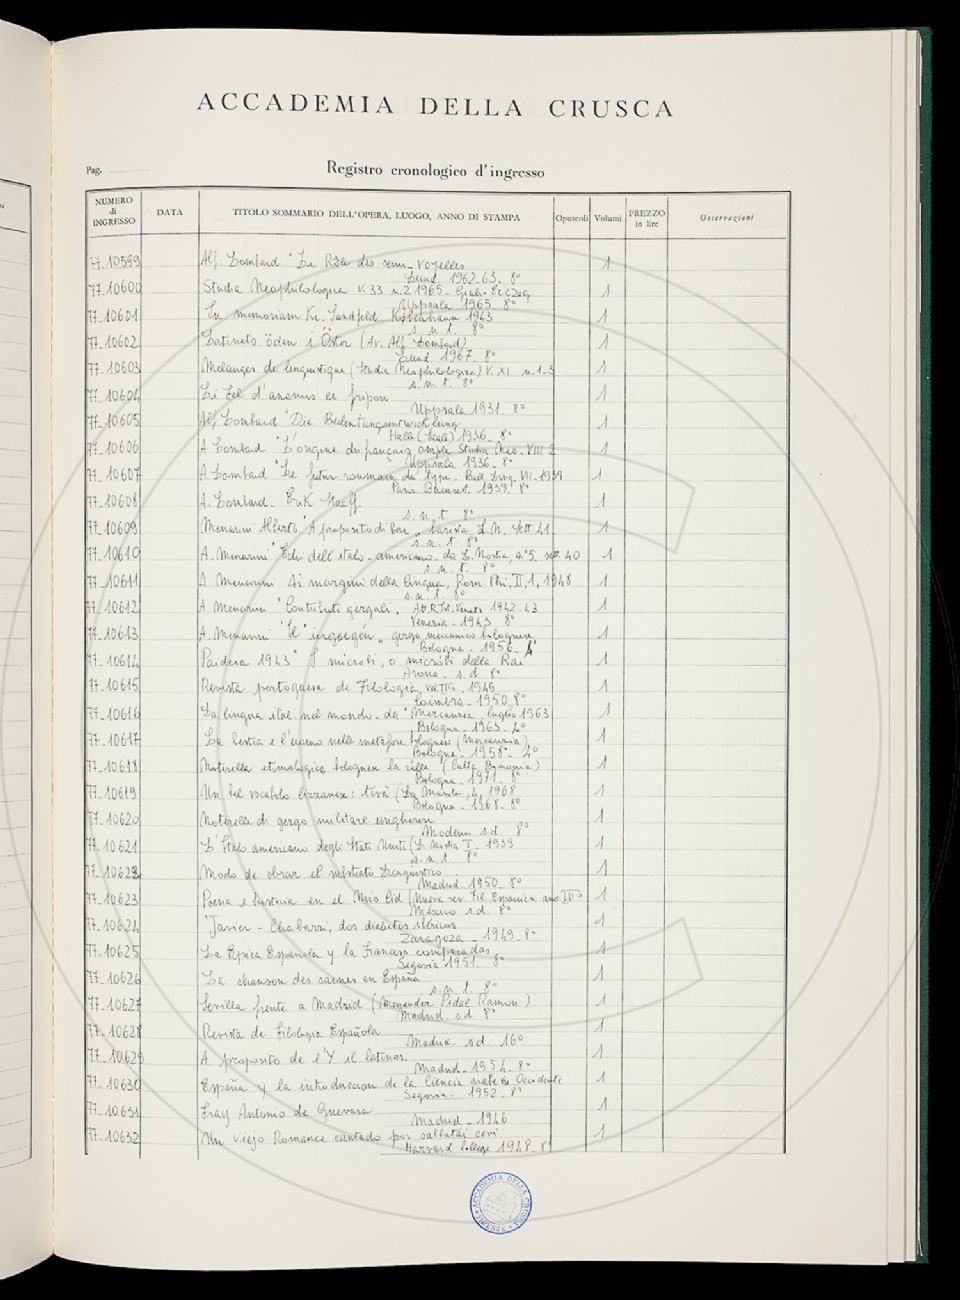 ACCADEMIA DELLA CRUSCA
Pag.
Registro cronologico d'ingresso
NUMERO di INGRESSO DATA TITOLO SOMMARIO DELL'OPERA, LUOGO, ANNO DI STAMPA Opuscoli Volumi PREZZO in lire Osservazioni
77-10599 Alf. Lombard "Le Rôle des semi-voyelles 1
Lund 1962-63 8°
77-10600 Studia Neophilologica V. 33 n. 2 1965 - 1
Uppsala 1965 8°
77-10601 In memoriam Kr. Sandfeld København 1943 1
s.n.t. 8°
77-10602 Latinets öden i Öster (Av. Alf Lombard) 1
Lund 1967 8°
77-10603 Mélanges de linguistique (Studia Neophilologica) V. XI n. 1-3 1
s.n.t. 8°
77-10604 Li fel d'anemis et fripon 1
Uppsala 1931 8°
77-10605 Alf Lombard "Die Bedeutungsentwicklung 1
Halle (Saale) 1936 8°
77-10606 A Lombard "L'origine du français Studia Neo. VIII 2 1
Uppsala 1936 8°
77-10607 A Lombard "Le futur roumain du type - Bull Ling. VII - 1939 1
Paris Bucarest 1939 8°
77-10608 A. Lombard - Erik Staaff. 1
s.n.t. 8°
77-10609 Menarini Alberto "A proposito di bar, barista L.N. sett 41 1
s.n.t. 8°
77-10610 A. Menarini "Echi dell'italo-americano - da L. Nostra, n° 5 sett. 40 1
s.n.t. 8°
77-10611 A Menarini Ai margini della lingua, Rom. Phi, II, 1, 1948 1
s.n.t. 8°
77-10612 A Menarini "Contributi gergali, Att.R.Ist.Veneto 1942-43 1
Venezia - 1943 8°
77-10613 A. Menarini "Il "ingoegén" gergo meccanico bolognese, 1
Bologna - 1956 4°
77-10614 Paideia 1943" I microbi, o micròbi della Rai 1
Arona - s.d 8°
77-10615 Revista portoguesa de Filologia, vol III - 1949 1
Coimbra - 1950 8°
77-10616 La lingua ital. nel mondo - da "Mercanzia, luglio 1963 1
Bologna - 1963 - 4°
77-10617 La bestia e l'uomo nelle metafore bolognesi (Mercanzia) 1
Bologna - 1958 - 4°
77-10618 Noterella etimologica bolognese la zella (Culta Bononia) 1
Bologna - 1971 - 8°
77-10619 Un bel vocabolo lizzanese: tirà (La Musola, 4, 1968 1
Bologna - 1968 - 8°
77-10620 Noterella di gergo militare ungherese 1
Modena s.d. 8°
77-10621 L'Italo americano degli Stati Uniti (L. Nostra I - 1939 1
s.n.t 8°
77-10622 Modo de obrar el substrato Linguístico 1
Madrid - 1950 - 8°
77-10623 Poesia e historia en el Mio Cid (Nueva rev. Fil. Espanica ano III° 1
México s.d. 8°
77-10624 "Javier - Chabarri, dos dialectos ibéricos 1
Zaragoza - 1949 - 8°
77-10625 La Epica Española y la Francesa comparadas 1
Segovia 1951 8°
77-10626 La chanson des saisnes en España 1
s.n.t. 8°
77-10627 Sevilla frente a Madrid (Menendez Pidal Ramon) 1
Madrid - s.d 8°
77-10628 Revista de Filologia Española 1
Madrid - s.d 16°
77-10629 A proposito de l'Y il latinas. 1
Madrid - 1954 - 8°
77-10630 España y la introduccion de la Ciencia arabe en Occidente 1
Segovia - 1952 - 8°
77-10631 Fray Antonio de Guevara 1
Madrid - 1946
77-10632 Un viejo Romance cantado por sabbatai cevi 1
Harvard College 1948 8°
ACCADEMIA DELLA CRUSCA • FIRENZE